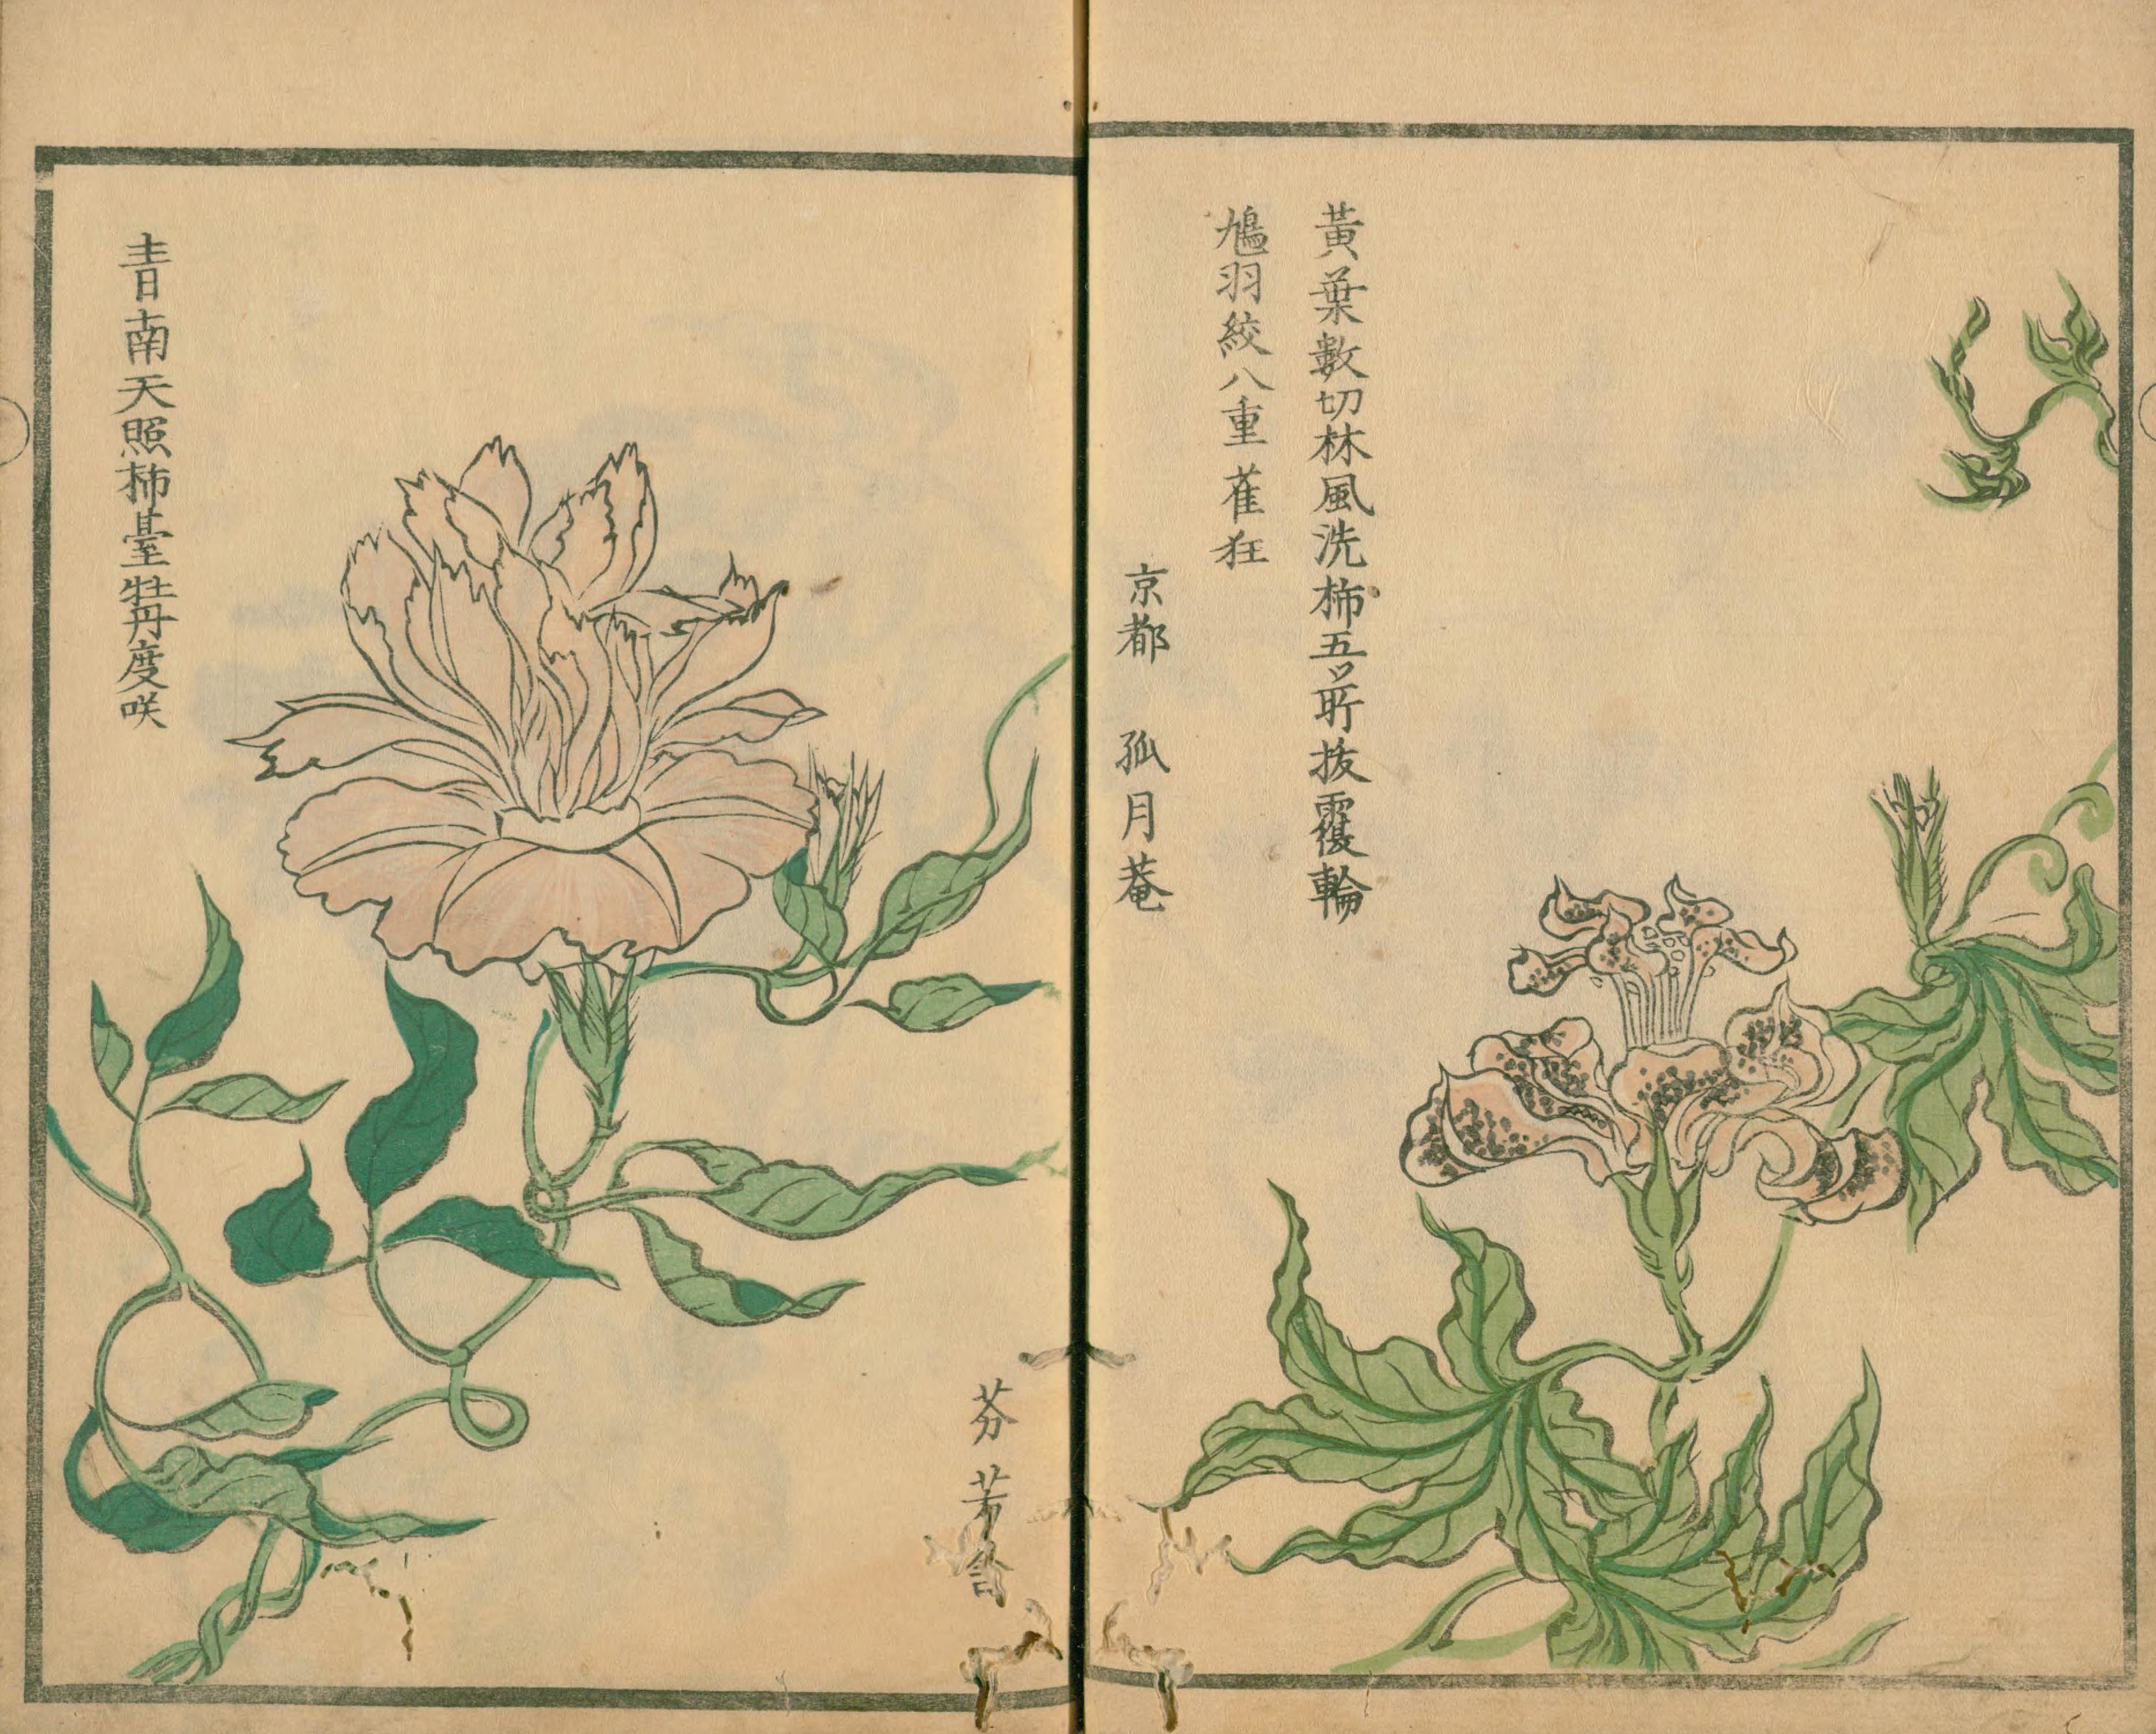 黃葉數切林風洗柿五ツ所抜覆輪
鳩羽絞八重雀狂
京都 孤月菴
青南天照柿臺牡丹度咲
芬芳舎